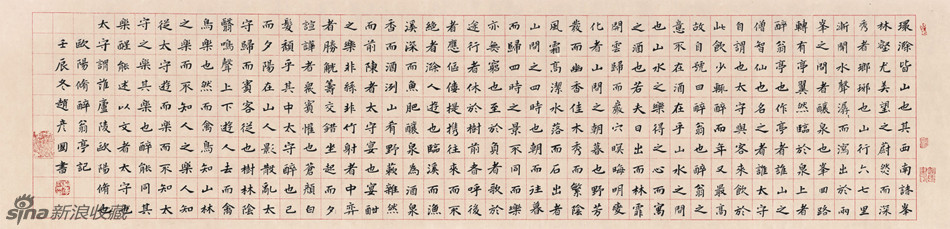 環滁皆山也其西南諸峯
林壑尤美望之蔚然而深
秀者瑯琊也山行六七里
漸聞水聲潺潺而瀉出於兩
峯之間者釀泉也峯回路
轉有亭翼然臨於泉上者
醉翁亭也作亭者誰山之
僧智仙也名之者誰太守
自謂也太守與客來飲於
此飲少輒醉而年又最高
故自號曰醉翁也醉翁之
意不在酒在乎山水之間
也山水之樂得之心而寓
之酒也若夫日出而林霏
開雲歸而巖穴暝晦明變
化者山間之朝暮也野芳
發而幽香佳木秀而繁陰
風霜高潔水落而石出者
山間之四時也朝而往暮
而歸四時之景不同而樂
亦無窮也至於負者歌於
途行者休於樹前者呼後
者應傴僂提攜往來而不
絕者滁人遊也臨溪而漁
溪深而魚肥釀泉為酒泉
香而酒洌山肴野蔌雜然
而前陳者太守宴也宴酣
之樂非絲非竹射者中弈
者勝觥籌交錯坐起而
諠譁者眾賓懽也蒼顏白
髮頹乎其中太守醉也已
而夕陽在山人影散亂太
守歸而賓客從也樹林陰
翳鳴聲上下遊人去而禽
鳥樂也然而禽鳥知山林
之樂而不知人之樂人知
從太守遊而樂而不知太
守之樂其樂也醉能同其
樂醒能述以文者太守也
太守謂誰廬陵歐陽脩也
歐陽脩醉翁亭記
壬辰冬趙彥國書
sina新浪收藏